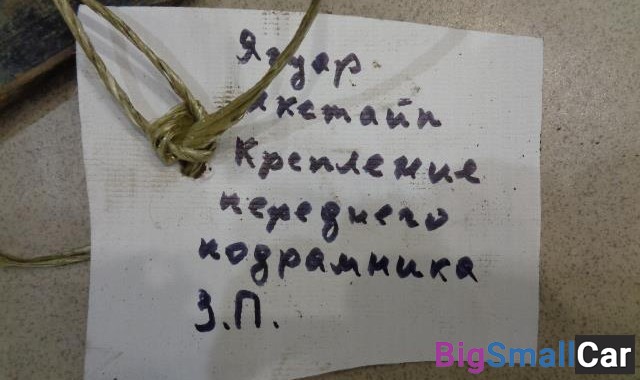 Ягуар
икстайп
Крепление
переднего
подрамника
З.П.
BigSmallCar